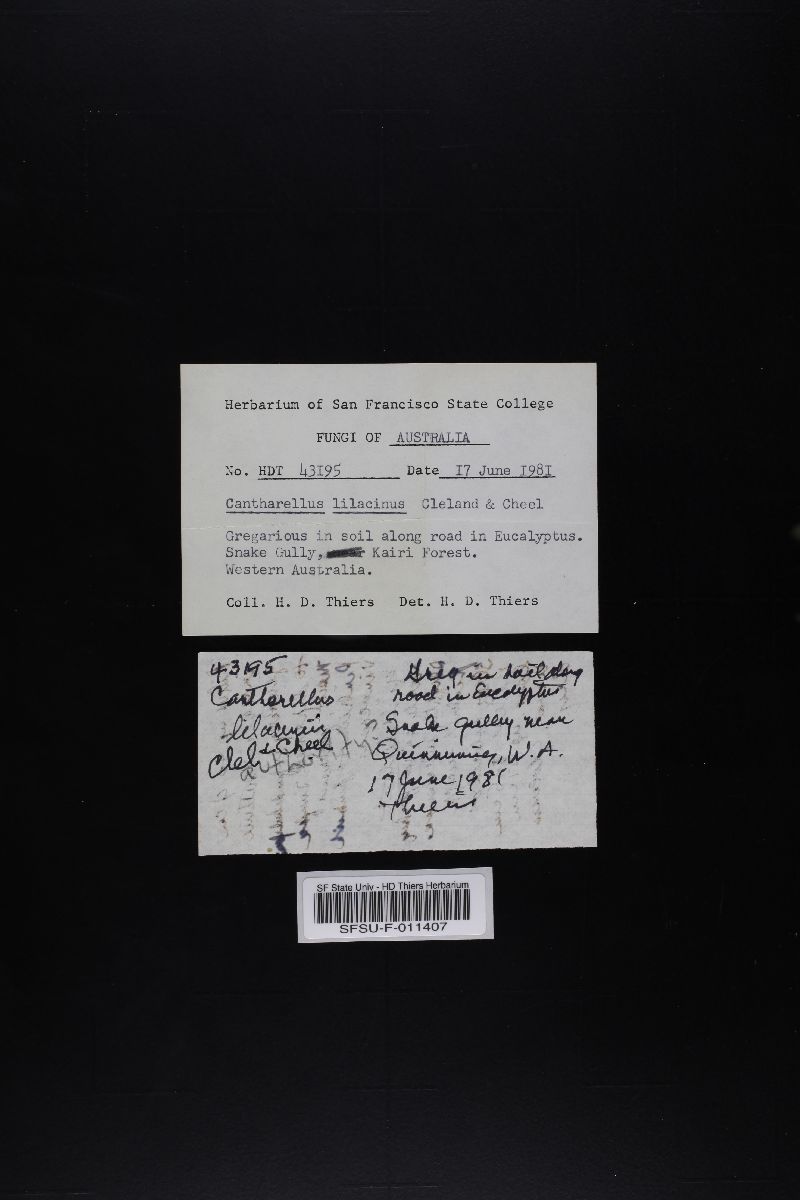 Herbarium of San Francisco State College
FUNGI OF AUSTRALIA
No. HDT 43195 Date 17 June 1981
Cantharellus lilacinus Cleland & Cheel
Gregarious in soil along road in Eucalyptus.
Snake Gully, Kairi Forest.
Western Australia.
Coll. H. D. Thiers Det. H. D. Thiers
43195
Cantharellus
lilacinus
Clel & Cheel
authority?
Greg in soil along
road in Eucalyptus
Snake gulley near
W.A.
17 June 1981
Thiers
SF State Univ - HD Thiers Herbarium
SFSU-F-011407